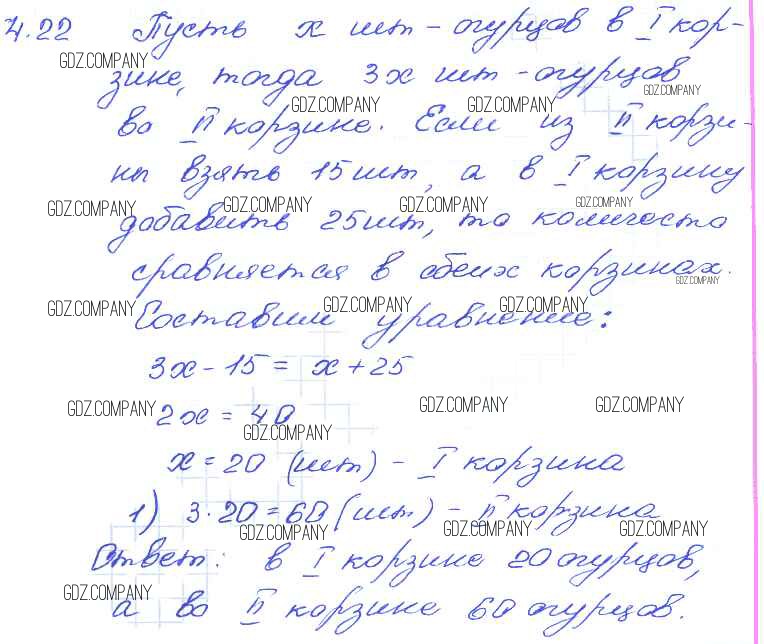 4.22 Пусть х шт - огурцов в I кор-
GDZ.COMPANY
зине, тогда 3х шт - огурцов
GDZ.COMPANY
GDZ.COMPANY GDZ.COMPANY
во II корзине. Если из II корзи-
ны взять 15 шт, а в I корзину
GDZ.COMPANY GDZ.COMPANY GDZ.COMPANY GDZ.COMPANY
добавить 25 шт, то количество
сравняется в обеих корзинах.
GDZ.COMPANY
GDZ.COMPANY GDZ.COMPANY GDZ.COMPANY
Составим уравнение:
3х - 15 = х + 25
GDZ.COMPANY GDZ.COMPANY GDZ.COMPANY
2х = 40
GDZ.COMPANY
х = 20 (шт) - I корзина
1) 3 · 20 = 60 (шт) - II корзина
GDZ.COMPANY GDZ.COMPANY GDZ.COMPANY
Ответ: в I корзине 20 огурцов,
GDZ.COMPANY
а во II корзине 60 огурцов.